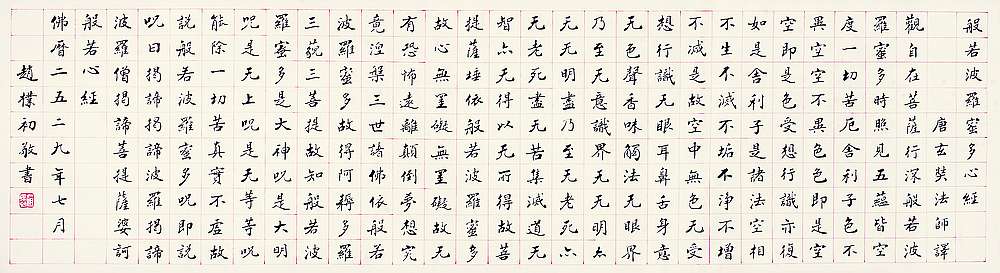 般若波羅蜜多心經
唐玄奘法師譯
觀自在菩薩行深般若波
羅蜜多時照見五蘊皆空
度一切苦厄舍利子色不
異空空不異色色即是空
空即是色受想行識亦復
如是舍利子是諸法空相
不生不滅不垢不淨不增
不減是故空中無色无受
想行識无眼耳鼻舌身意
无色聲香味觸法无眼界
乃至无意識界无无明亦
无无明盡乃至无老死亦
无老死盡无苦集滅道无
智亦无得以无所得故菩
提薩埵依般若波羅蜜多
故心無罣礙無罣礙故无
有恐怖遠離顛倒夢想究
竟涅槃三世諸佛依般若
波羅蜜多故得阿耨多羅
三藐三菩提故知般若波
羅蜜多是大神呪是大明
呪是无上呪是无等等呪
能除一切苦真實不虛故
說般若波羅蜜多呪即說
呪曰揭諦揭諦波羅揭諦
波羅僧揭諦菩提薩婆訶
般若心經
佛曆二五二九年七月
趙樸初敬書